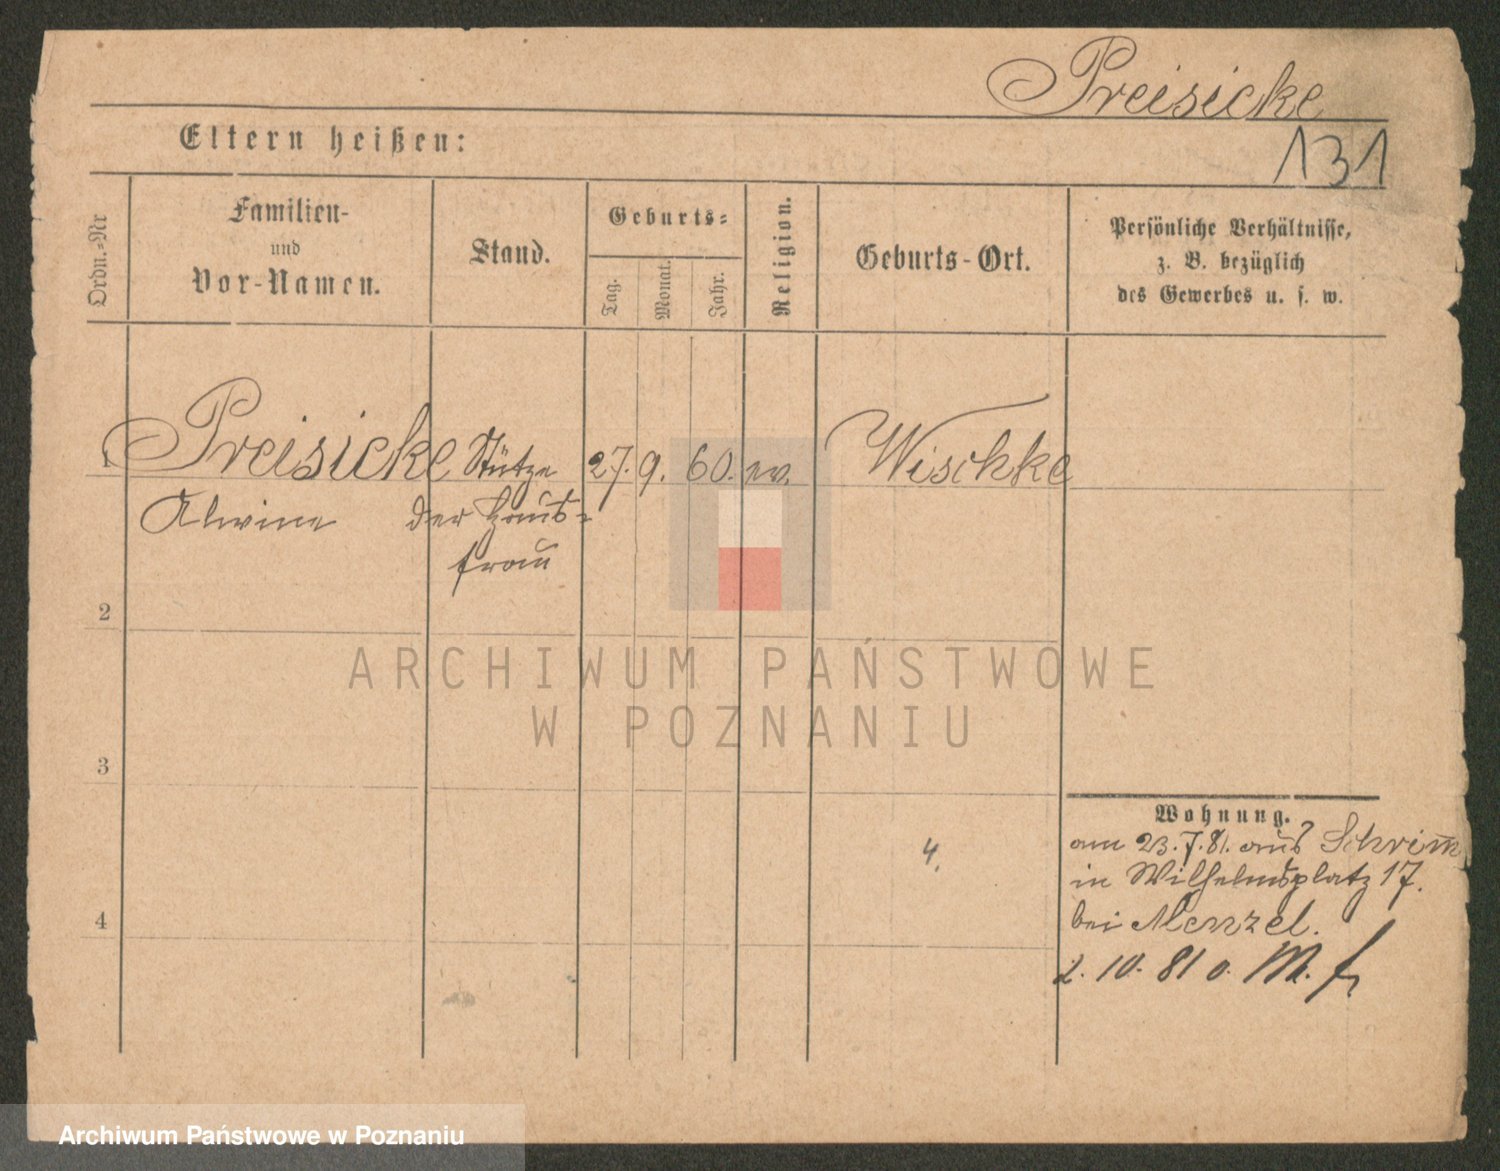 Preisicke
Eltern heißen:
131
Ordn.=Nr
Familien-
und
Vor-Namen.
Stand.
Geburts=
Tag.
Monat.
Jahr.
Religion.
Geburts-Ort.
Persönliche Verhältnisse,
z. B. bezüglich
des Gewerbes u. s. w.
1 Preisicke Stütze 27. 9. 60. ev. Wischke
Alwine der Haus-
frau
2
3
4
4.
Wohnung.
am 23.7.81. aus Schrimm
in Wilhelmsplatz 17.
bei Menzel.
2. 10. 81 o. M. f.
ARCHIWUM PAŃSTWOWE
W POZNANIU
Archiwum Państwowe w Poznaniu